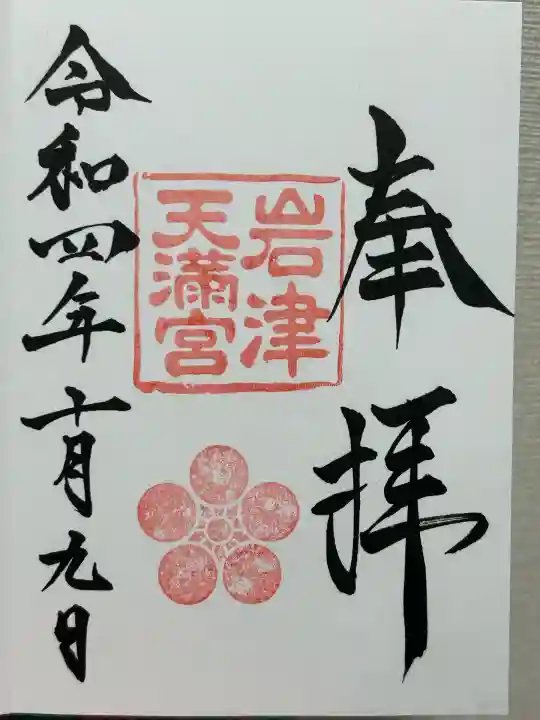 奉拝
岩津
天満宮
令和四年十月九日